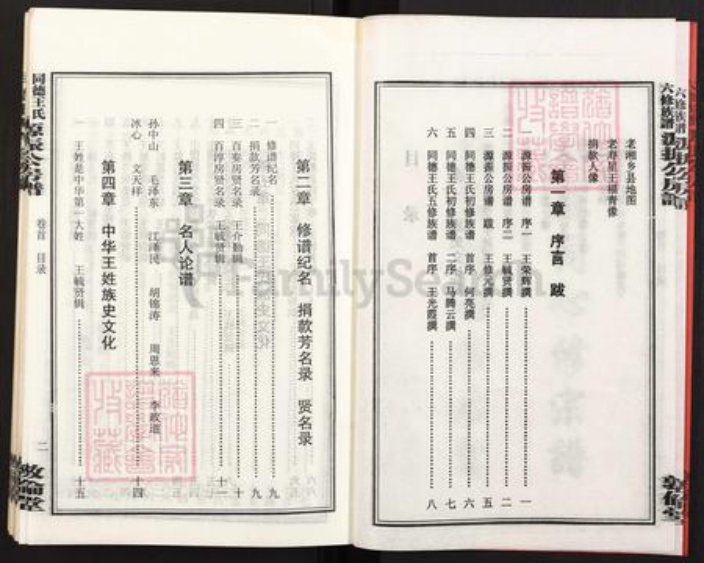 老湘乡县地图
老寿星王福青像
捐款人像
第一章 序言 跋
一 源振公房谱 序一 王荣辉撰 一
二 源振公房谱 序二 王毓贤撰 二
三 源振公房谱 跋 王修元撰 五
四 同德王氏初修族谱 首序 何亮撰 六
五 同德王氏初修族谱 二序 马腾云撰 七
六 同德王氏五修族谱 首序 王光霞撰 八
第二章 修谱纪名 捐款芳名录 贤名录
一 修谱纪名 九
二 捐款芳名录 九
三 百奏房贤名录 王介勋辑 十
四 百淳房贤名录 王毓贤辑 十一
第三章 名人论谱
孙中山 毛泽东 江泽民 胡锦涛 周恩来 李政道
冰心 文天祥 十四
第四章 中华王姓族史文化
一 王姓是中华第一大姓 王毓贤辑 十五
同德王氏源振公房谱 卷首 目录 二 敦倫堂
六修族譜 源振公房譜 敦倫堂
FamilySearch